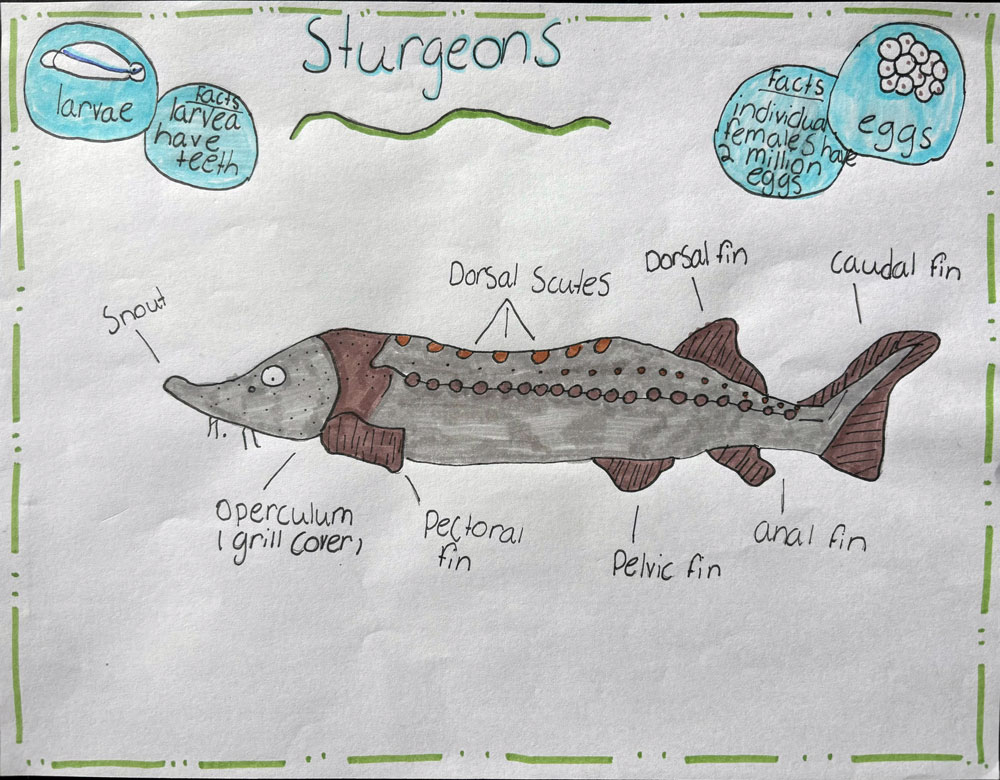 Sturgeons
larvae
Facts
larvea
have
teeth
Facts
individual
females have
2 million
eggs
eggs
Snout
Dorsal Scutes
Dorsal fin
Caudal fin
Operculum
(grill cover)
Pectoral
fin
Pelvic fin
anal fin